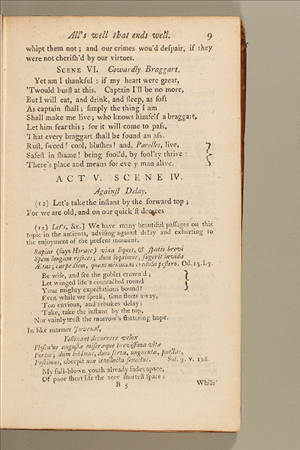 All's well that ends well. 9
whipt them not; and our crimes wou'd despair, if they
were not cherish'd by our virtues.
SCENE VI. Cowardly Braggart.
Yet am I thankful: if my heart were great,
'Twould burst at this. Captain I'll be no more,
But I will eat, and drink, and sleep, as soft
As captain shall; simply the thing I am
Shall make me live; who knows himself a braggart,
Let him fear this; for it will come to pass,
That every braggart shall be found an ass.
Rust, sword! cool, blushes! and, Parolles, live,
Safest in shame! being fool'd, by fool'ry thrive:
There's place and means for every man alive.
ACT V. SCENE IV.
Against Delay.
(12) Let's take the instant by the forward top;
For we are old, and on our quick'st decrees
(12) Let's, &c.] We have many beautiful passages on this
topic in the antients, advising against delay and exhorting to
the enjoyment of the present moment.
Sapias (says Horace) vina liques, & spatio brevi
Spem longam reseces; dum loquimur, fugerit invida
Ætas; carpe diem, quam minimum credula postero. Od. 13. l. 1.
Be wise, and see the goblet crown'd;
Let winged life's contracted round
Your mighty expectations bound!
Even while we speak, time fleets away,
Too envious, and rebukes delay:
Take, take the instant by the top,
Nor vainly trust the morrow's flattering hope.
In like manner Juvenal,
Festinat decurrere velox
Flosculus angustæ miseræque brevissima vitæ
Portio; dum bibimus, dum serta, unguenta, puellas,
Poscimus, obrepit non intellecta senectus. Sat. 9. v. 126.
My full-blown youth already fades apace,
Of poor short life the very shortest space:
B 5 While